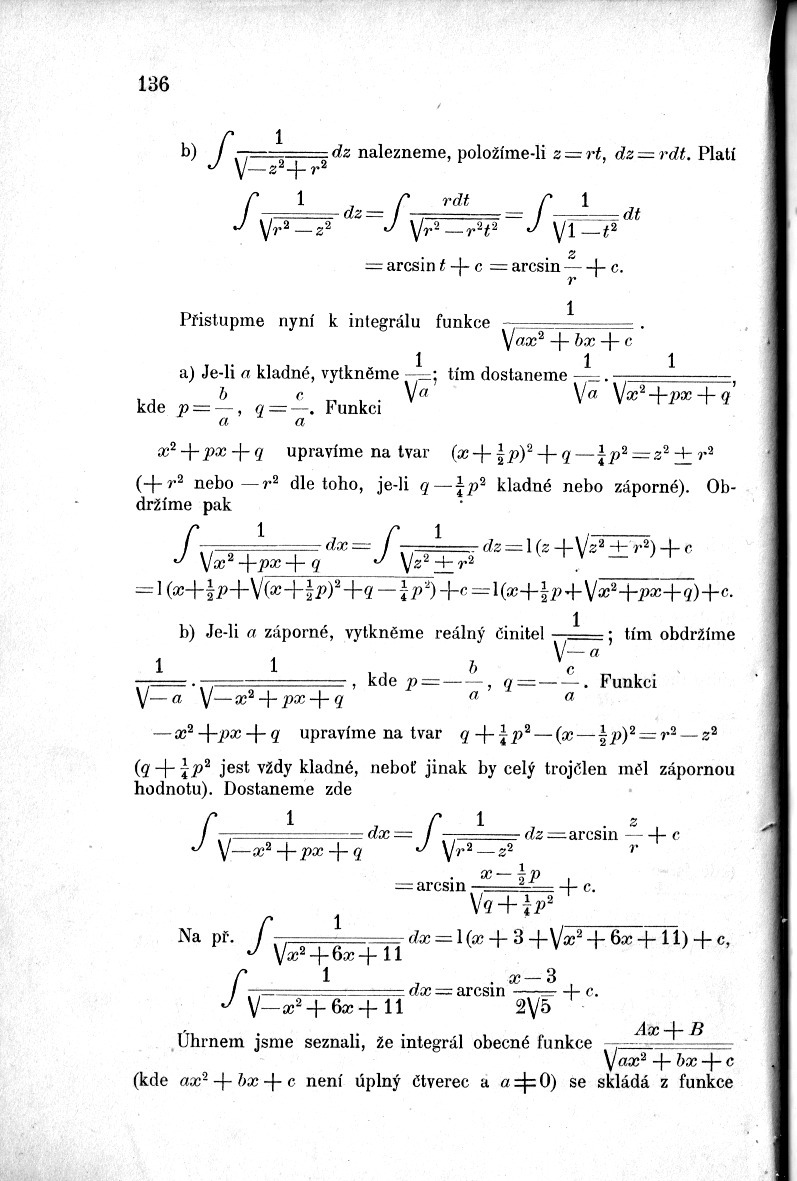 136
b) ∫ 1/√(—z²+r²) dz nalezneme, položíme-li z = rt, dz = rdt. Platí
∫ 1/√(r² — z²) dz = ∫ rdt/√(r² — r²t²) = ∫ 1/√(1 — t²) dt
= arcsin t + c = arcsin z/r + c.
Přistupme nyní k integrálu funkce 1/√(ax² + bx + c) .
a) Je-li a kladné, vytkněme 1/√a; tím dostaneme 1/√a . 1/√(x² + px + q),
kde p = b/a, q = c/a. Funkci
x² + px + q upravíme na tvar (x + ½p)² + q — ¼p² = z² ± r²
(+ r² nebo — r² dle toho, je-li q — ¼p² kladné nebo záporné). Ob-
držíme pak
∫ 1/√(x² + px + q) dx = ∫ 1/√(z² ± r²) dz = l (z + √(z² ± r²)) + c
= l (x+½p+√((x+½p)²+q — ¼p²)) + c = l(x+½p+√(x²+px+q))+c.
b) Je-li a záporné, vytkněme reálný činitel 1/√(—a); tím obdržíme
1/√(—a) . 1/√(—x² + px + q), kde p = — b/a, q = — c/a. Funkci
— x² + px + q upravíme na tvar q + ¼p² — (x — ½p)² = r² — z²
(q + ¼p² jest vždy kladné, neboť jinak by celý trojčlen měl zápornou
hodnotu). Dostaneme zde
∫ 1/√(—x² + px + q) dx = ∫ 1/√(r² — z²) dz = arcsin z/r + c
= arcsin (x — ½p)/√(q + ¼p²) + c.
Na př. ∫ 1/√(x² + 6x + 11) dx = l (x + 3 + √(x² + 6x + 11)) + c,
∫ 1/√(—x² + 6x + 11) dx = arcsin (x — 3)/(2√5) + c.
Úhrnem jsme seznali, že integrál obecné funkce (Ax + B)/√(ax² + bx + c)
(kde ax² + bx + c není úplný čtverec a a ≠ 0) se skládá z funkce